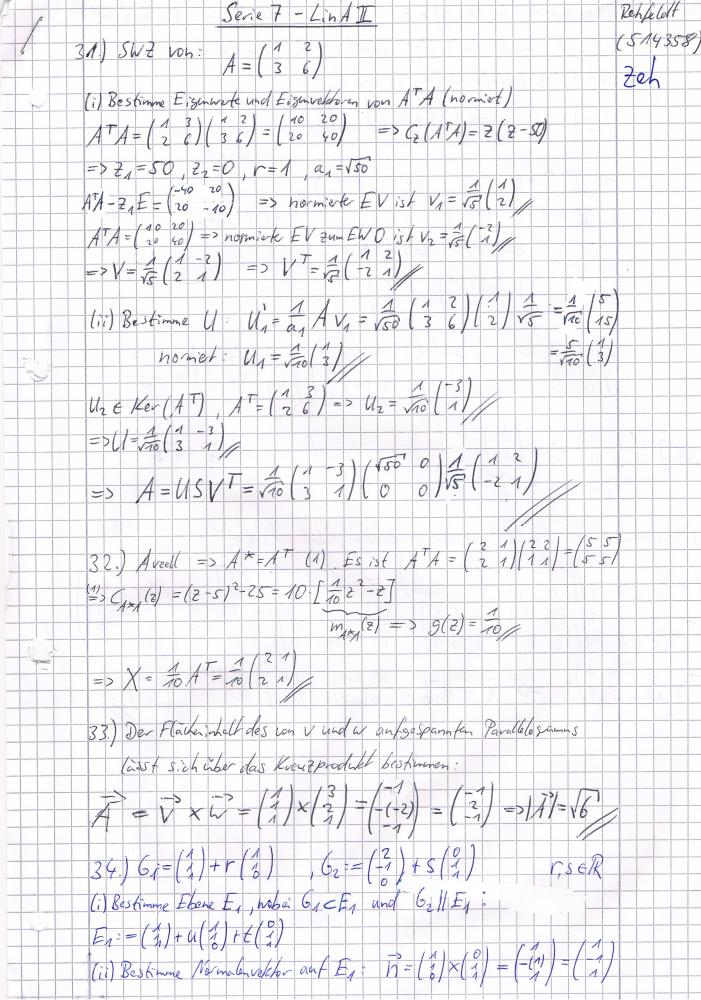 Serie 7 - LinA II
Rehfeldt
(514358)
Zeh
31.) SWZ von: A = (1 2 / 3 6)
(i) Bestimme Eigenwerte und Eigenvektoren von AᵀA (normiert)
AᵀA = (1 3 / 2 6)(1 2 / 3 6) = (10 20 / 20 40) => C_z(AᵀA) = z(z-50)
=> z₁ = 50, z₂ = 0, r = 1, a₁ = √50
AᵀA - z₁E = (-40 20 / 20 -10) => normierte EV ist v₁ = 1/√5 (1 / 2)
AᵀA = (10 20 / 20 40) => normierte EV zum EW 0 ist v₂ = 1/√5 (-2 / 1)
=> V = 1/√5 (1 -2 / 2 1) => Vᵀ = 1/√5 (1 2 / -2 1)
(ii) Bestimme U: U₁' = 1/a₁ A v₁ = 1/√50 (1 2 / 3 6)(1 / 2) 1/√5 = 1/√10 (5 / 15)
normiert: U₁ = 1/√10 (1 / 3) = 5/√10 (1 / 3)
U₂ ∈ Ker(Aᵀ), Aᵀ = (1 3 / 2 6) => U₂ = 1/√10 (-3 / 1)
=> U = 1/√10 (1 -3 / 3 1)
=> A = USVᵀ = 1/√10 (1 -3 / 3 1)(√50 0 / 0 0) 1/√5 (1 2 / -2 1)
32.) A reell => A* = Aᵀ (1). Es ist AᵀA = (2 1 / 2 1)(2 2 / 1 1) = (5 5 / 5 5)
(1) => C_A*A(z) = (z-5)² - 25 = 10 · [1/10 z² - z]
m_A*A(z) => g(z) = 1/10
=> X = 1/10 Aᵀ = 1/10 (2 1 / 2 1)
33.) Der Flächeninhalt des von v und w aufgespannten Parallelogramms
lässt sich über das Kreuzprodukt bestimmen:
A = v × w = (1 / 1 / 1) × (3 / 2 / 1) = (-1 / -(-2) / -1) = (-1 / 2 / -1) => |A| = √6
34.) G₁ = (1 / 1 / 1) + r (1 / 1 / 0), G₂ := (2 / -1 / 0) + s (0 / 1 / 1) r,s ∈ ℝ
(i) Bestimme Ebene E₁, wobei G₁ ⊂ E₁ und G₂ || E₁:
E₁ := (1 / 1 / 1) + u (1 / 1 / 0) + t (0 / 1 / 1)
(ii) Bestimme Normalenvektor auf E₁: n = (1 / 1 / 0) × (0 / 1 / 1) = (1 / -(1) / 1) = (1 / -1 / 1)